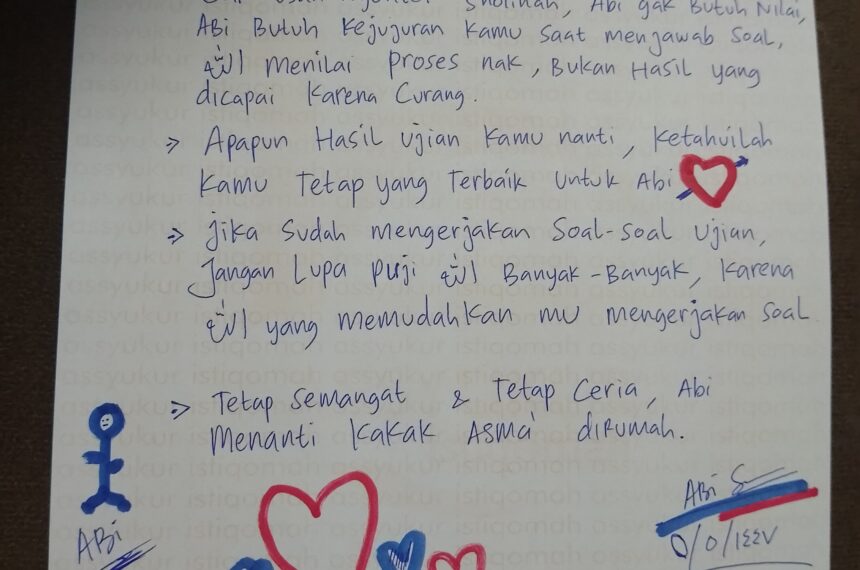 Sholihah, Abi gak Butuh Nilai,
ABi Butuh Kejujuran Kamu Saat menjawab Soal,
الله menilai proses nak, Bukan Hasil yang
dicapai Karena Curang.
⇒ Apapun Hasil Ujian Kamu nanti, Ketahuilah
Kamu Tetap yang Terbaik Untuk Abi
⇒ Jika Sudah mengerjakan Soal-Soal Ujian,
Jangan Lupa Puji الله Banyak-Banyak, Karena
الله yang memudahkan mu mengerjakan Soal.
⇒ Tetap Semangat & Tetap Ceria, Abi
Menanti Kakak Asma' diRumah.
ABi
ABi
٥/٥/١٤٤٧